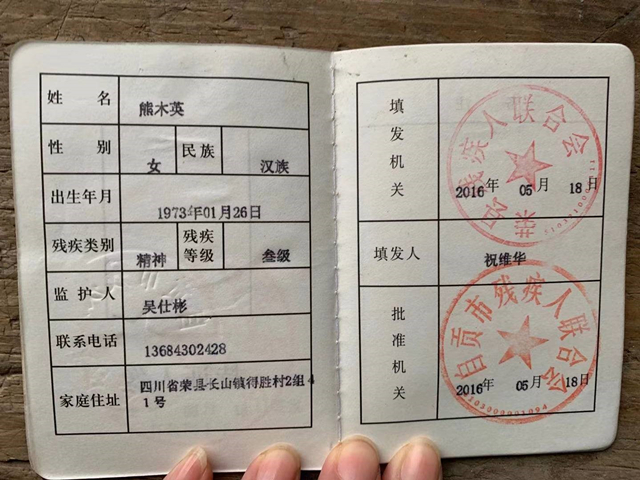 姓名 熊木英
性别 女 民族 汉族
出生年月 1973年01月26日
残疾类别 精神 残疾等级 叁级
监护人 吴仕彬
联系电话 13684302428
家庭住址 四川省荣县长山镇得胜村2组4
1号
填发机关 荣县残疾人联合会
2016年 05月 18日
填发人 祝维华
批准机关 自贡市残疾人联合会
2016年 05月 18日